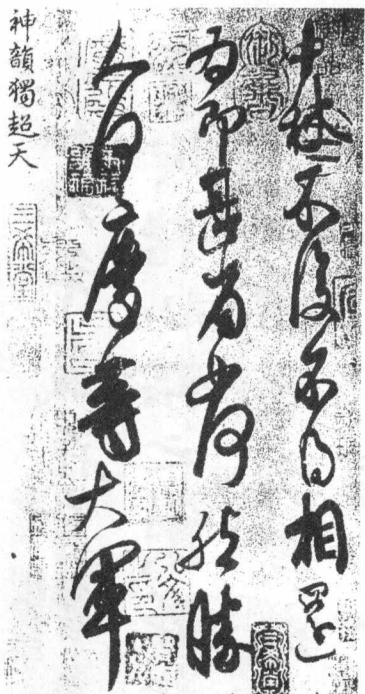 中秋不復不得相還
為即甚省如何然勝
人何慶等大軍
神韻獨超天
三希堂